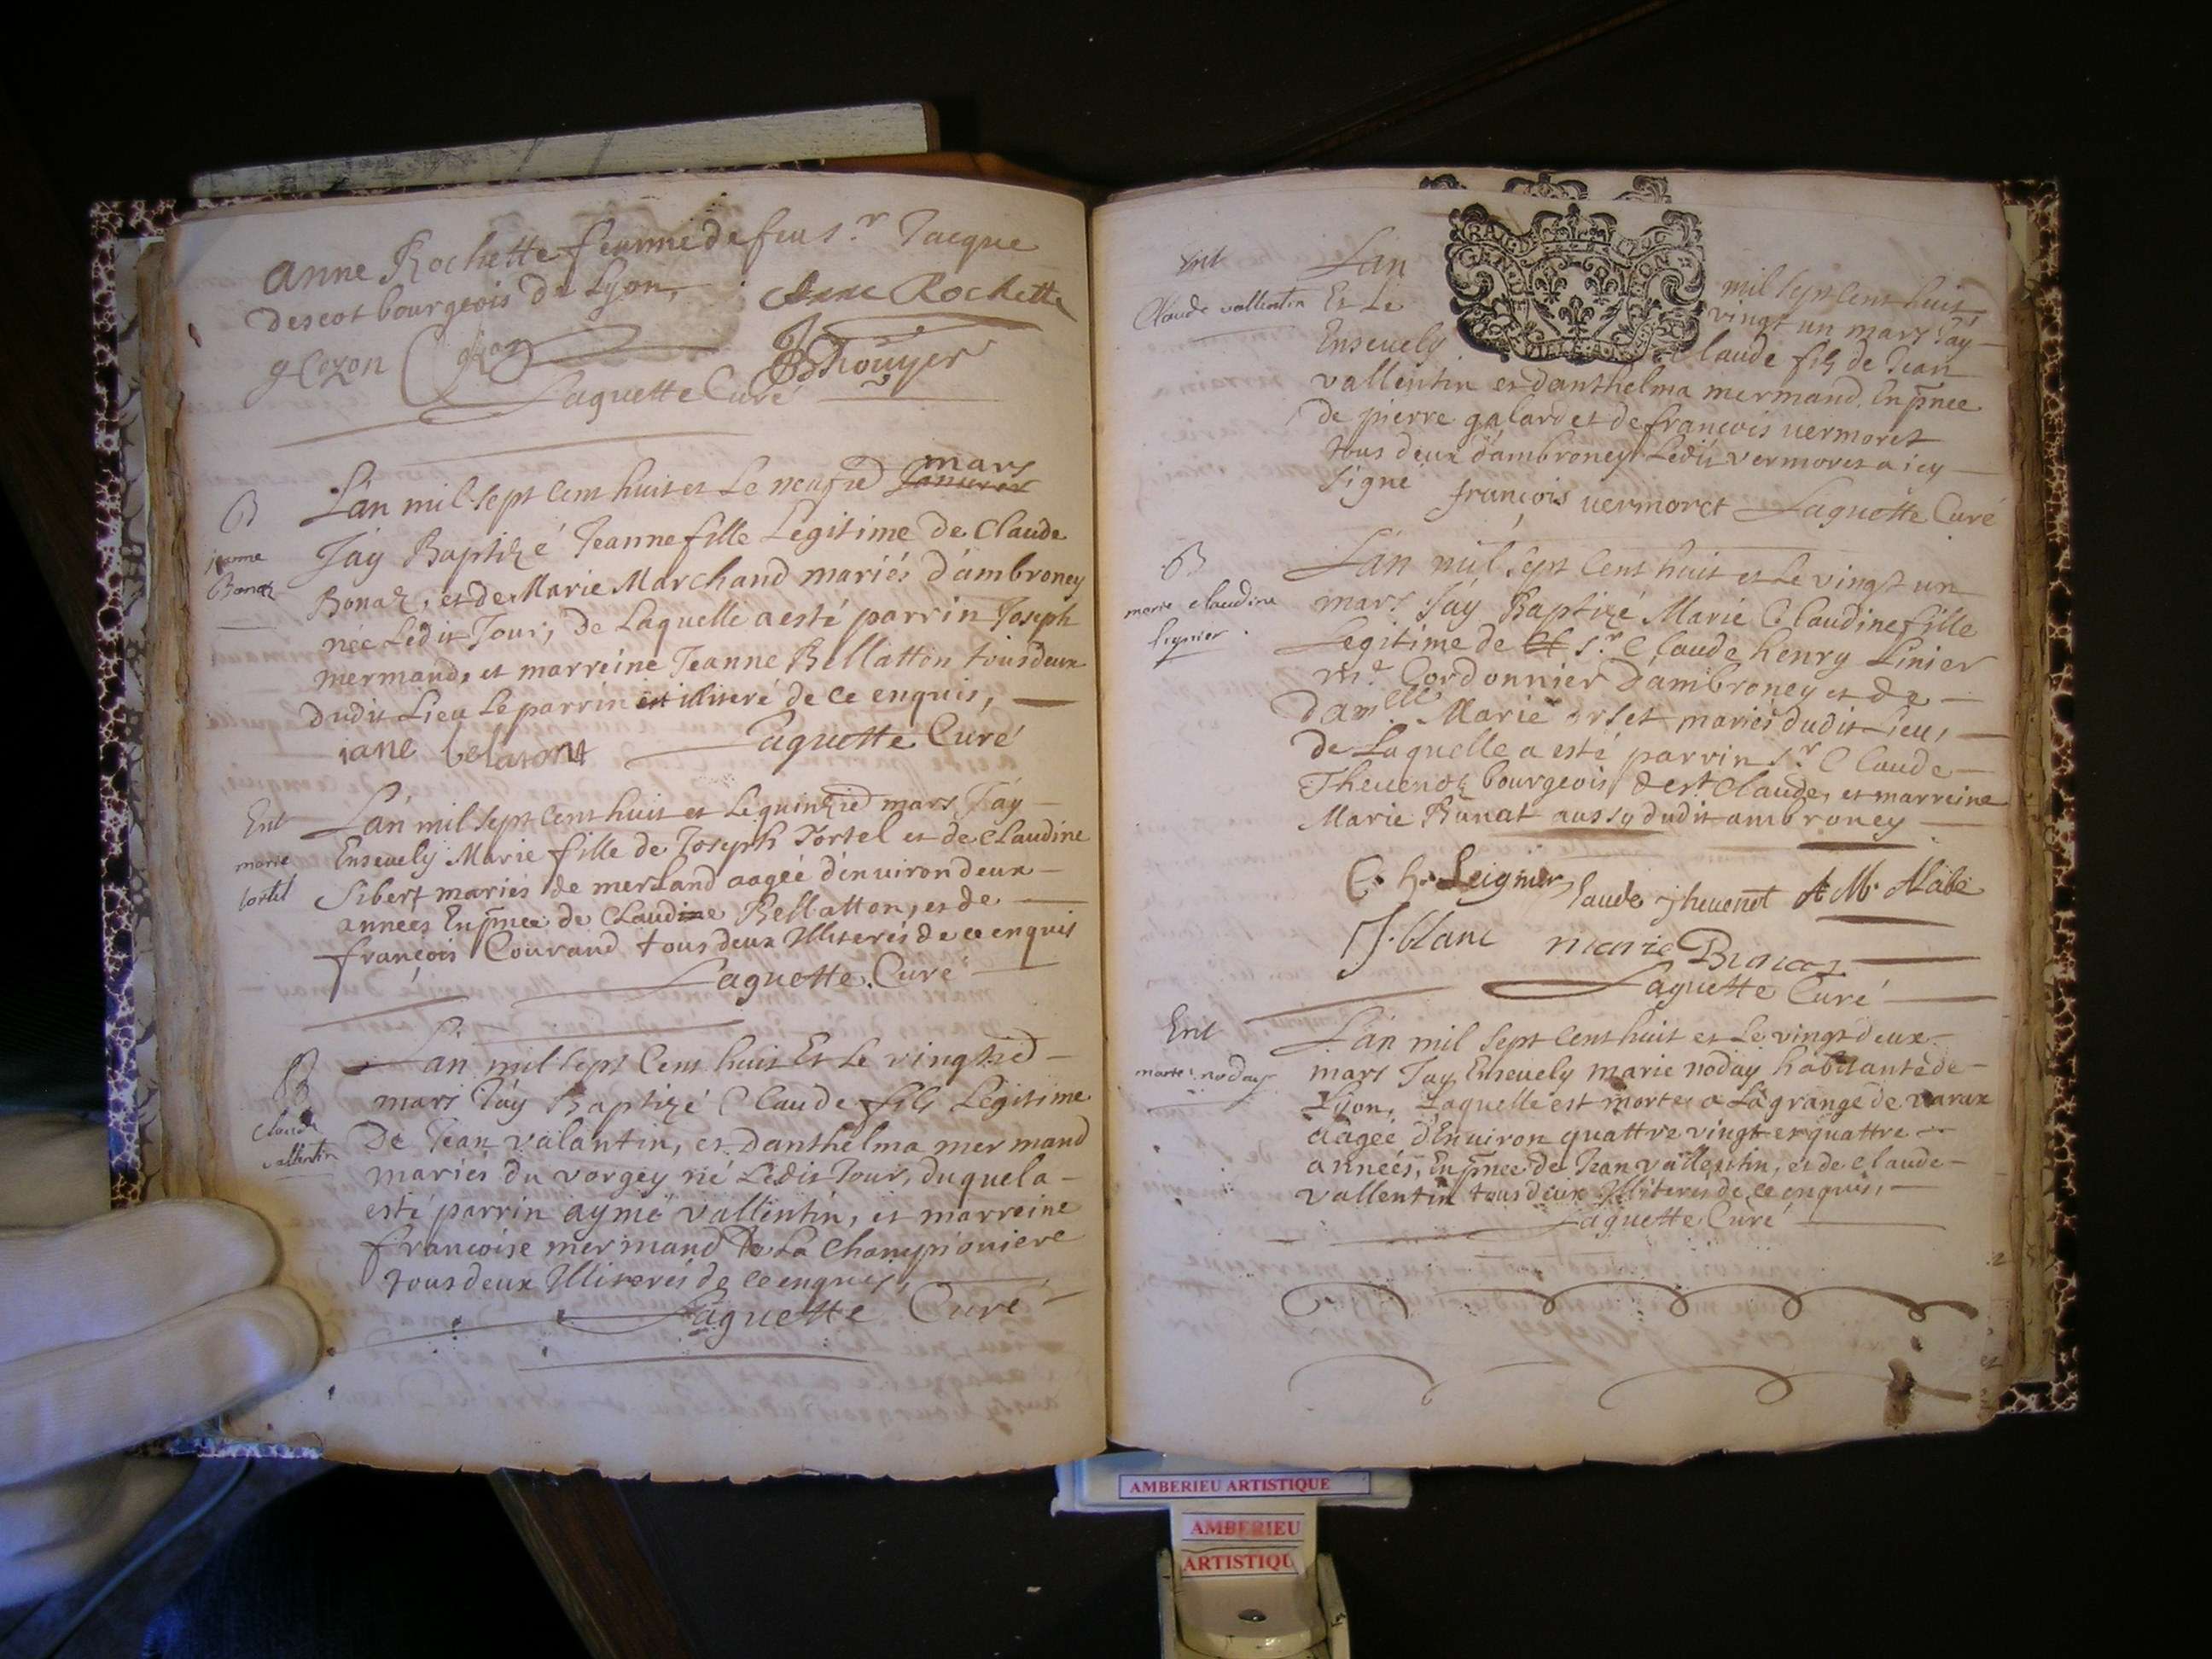 Anne Rochette femme de feu s.r Jacque
Descot bourgeois de Lyon,
Anne Rochette
g Cozon
Laguette Curé
B
jeanne
Bonaz
L'an mil sept cent huit et le neufie mars
J'ay Baptizé Jeanne fille Legitime de Claude
Bonaz, et de Marie Marchand mariés d'ambroney
née Ledit Jour, de Laquelle a esté parrin Joseph
mermand, et marreine Jeanne Bellatton tous deux
dudit Lieu Le parrin est illiteré de ce enquis,
jane belaton
Laguette Curé
Ent
marie
tortel
L'an mil sept cent huit et Le quinzie mars J'ay
Ensevely Marie fille de Joseph Tortel et de Claudine
Sibert mariés de merland aagée d'environ deux
années En pnce de Claudine Bellatton, et de
françois Courand tous deux Illiterés de ce enquis
Laguette Curé
B
Claude
vallentin
L'an mil sept Cent huit Et Le vingtie
mars J'ay Baptizé Claude fils Legitime
De Jean valantin, et Danthelma mermand
mariés du vorgey né Ledit Jour, duquel a
esté parrin aymé vallentin, et marreine
francoise mermand de La Championiere
tous deux Illiterés de ce enquis,
Laguette Curé
Ent
Claude vallentin
L'an mil sept cent huit
Et Le vingt un mars J'ay
Ensevely Claude fils de Jean
vallentin et danthelma mermand. En pnce
de pierre galard et de francois vermoret
tous deux d'ambroney Ledit vermoret a icy
signé francois vermoret Laguette Curé
B
marie claudine
lignier
L'an mil sept Cent huit et Le vingt un
mars J'ay Baptizé Marie Claudine fille
Legitime de s.r Claude henry Linier
m.e Cordonnier D'ambroney et de
dam.elle Marie orset mariés dudit Lieu,
de Laquelle a esté parrin s.r Claude
Thevenot bourgeois de st Claude, et marreine
Marie Bunat aussy dudit ambroney
C. h. Leignier Claude Thevenot A M Alabe
J. blanc marie Bunat
Laguette Curé
Ent
marie noday
L'an mil sept cent huit et Le vingt deux
mars J'ay Ensevely marie noday habitante de
Lyon, Laquelle est morte a La grange de varax
aagée d'Environ quattre vingt et quattre
années, En pnce de Jean vallentin, et de claude
vallentin tous deux Illiterés de ce enquis,
Laguette Curé
AMBERIEU ARTISTIQUE
AMBERIEU
ARTISTIQU